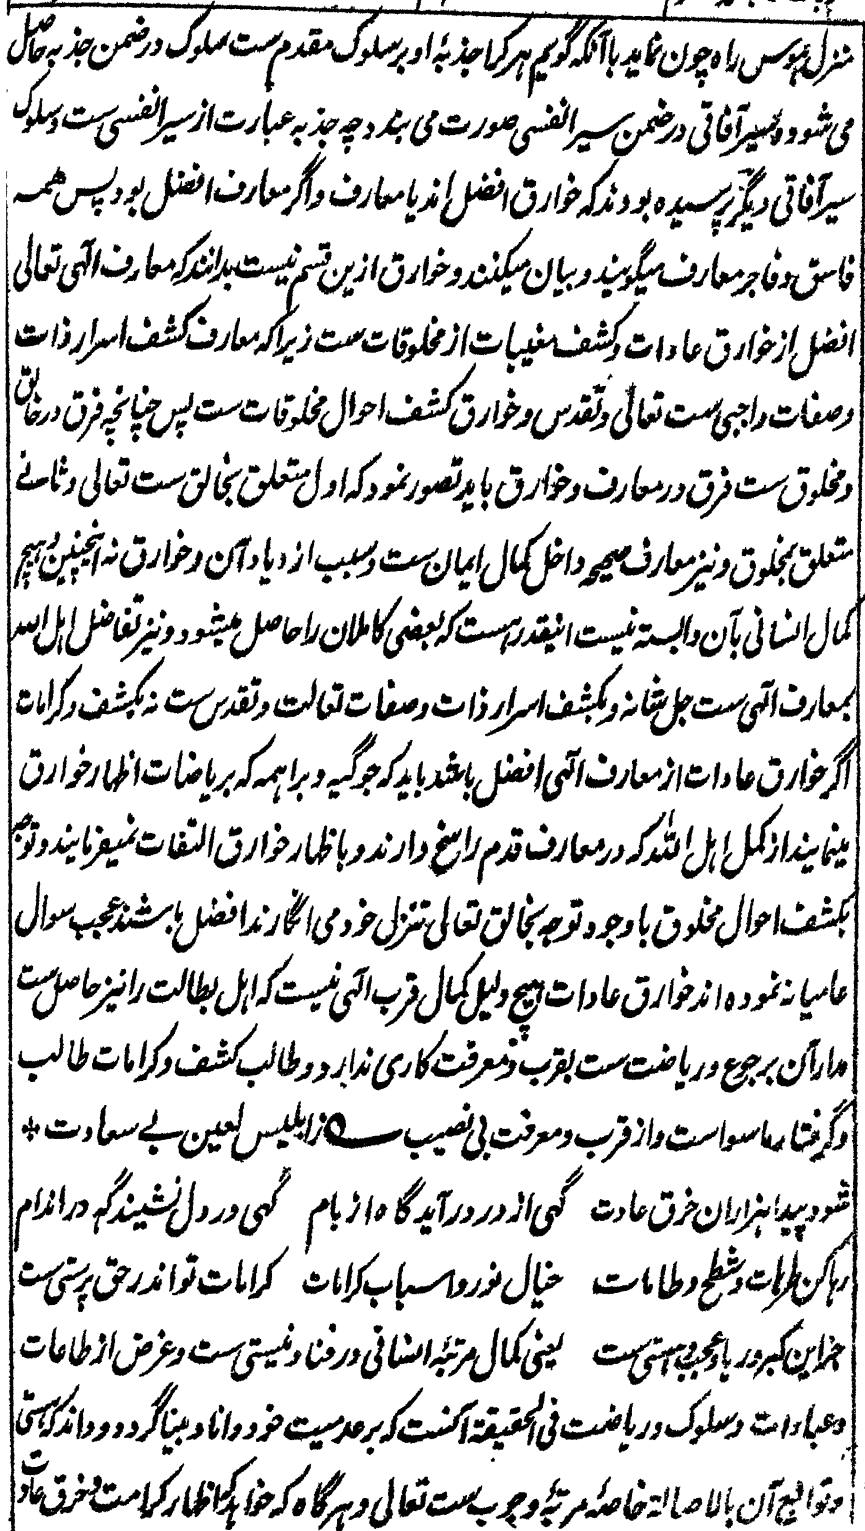 منزل بهوس راه چون نماید با آنکه گویم هر کرا جذبهٔ او بر سلوک مقدم ست سلوک در ضمن جذبه حاصل
می شود و سیر آفاقی در ضمن سیر انفسی صورت می بندد چه جذبه عبارت از سیر انفسی ست و سلوک
سیر آفاقی دیگر پرسیده بودند که خوارق افضل اند یا معارف و اگر معارف افضل بود پس همه
فاسق و فاجر معارف میگویند و بیان میکنند و خوارق ازین قسم نیست بدانند که معارف الٓهی تعالی
افضل از خوارق عادات و کشف مغیبات از مخلوقات ست زیرا که معارف کشف اسرار ذات
و صفات واجبی ست تعالی و تقدس و خوارق کشف احوال مخلوقات ست پس چنانچه فرق در خالق
و مخلوق ست فرق در معارف و خوارق باید تصور نمود که اول متعلق بخالق ست تعالی و ثانے
متعلق بمخلوق و نیز معارف صحیحه داخل کمال ایمان ست و سبب ازدیاد آن و خوارق نه اینچنین و هیچ
کمال انسانی بآن وابسته نیست اینقدر هست که بعضی کاملان را حاصل میشود و نیز تفاضل اهل الله
بمعارف الٓهی ست جل شانه و بکشف اسرار ذات و صفات تعالت و تقدس ست نه بکشف و کرامات
اگر خوارق عادات از معارف الٓهی افضل باشد باید که جوگیه و براهمه که بریاضات اظهار خوارق
مینمایند از کمل اهل الله که در معارف قدم راسخ دارند و باظهار خوارق التفات نمیفرمایند و توجه
بکشف احوال مخلوق با وجود توجه بخالق تعالی تنزل خود می انگارند افضل باشند عجب سوال
عامیانه نموده اند خوارق عادات هیچ دلیل کمال قرب الٓهی نیست که اهل بطالت را نیز حاصل ست
مدار آن بر جوع و ریاضت ست بقرب و معرفت کاری ندارد و طالب کشف و کرامات طالب
و گرفتار ماسواست و از قرب و معرفت بی نصیب ؎ ز ابلیس لعین بے سعادت *
شود پیدا هزاران خرق عادت گهی از در در آید گاه از بام گهی در دل نشیند گه در اندام
رها کن طرهات و شطح و طامات خیال نور و اسباب کرامات کرامات تو اندر حق پرستی ست
جز این کبر و ریا و عجب و هستی ست یعنی کمال مرتبهٔ انسانی در فنا و نیستی ست و غرض از طاعات
و عبادات و سلوک و ریاضت فی الحقیقة آنست که بر عدمیت خود دانا و بینا گردد و داند که هستی
و توابع آن بالاصالة خاصهٔ مرتبهٔ وجوب ست تعالی و هرگاه که خواهد که اظهار کرامت و خرق عادات